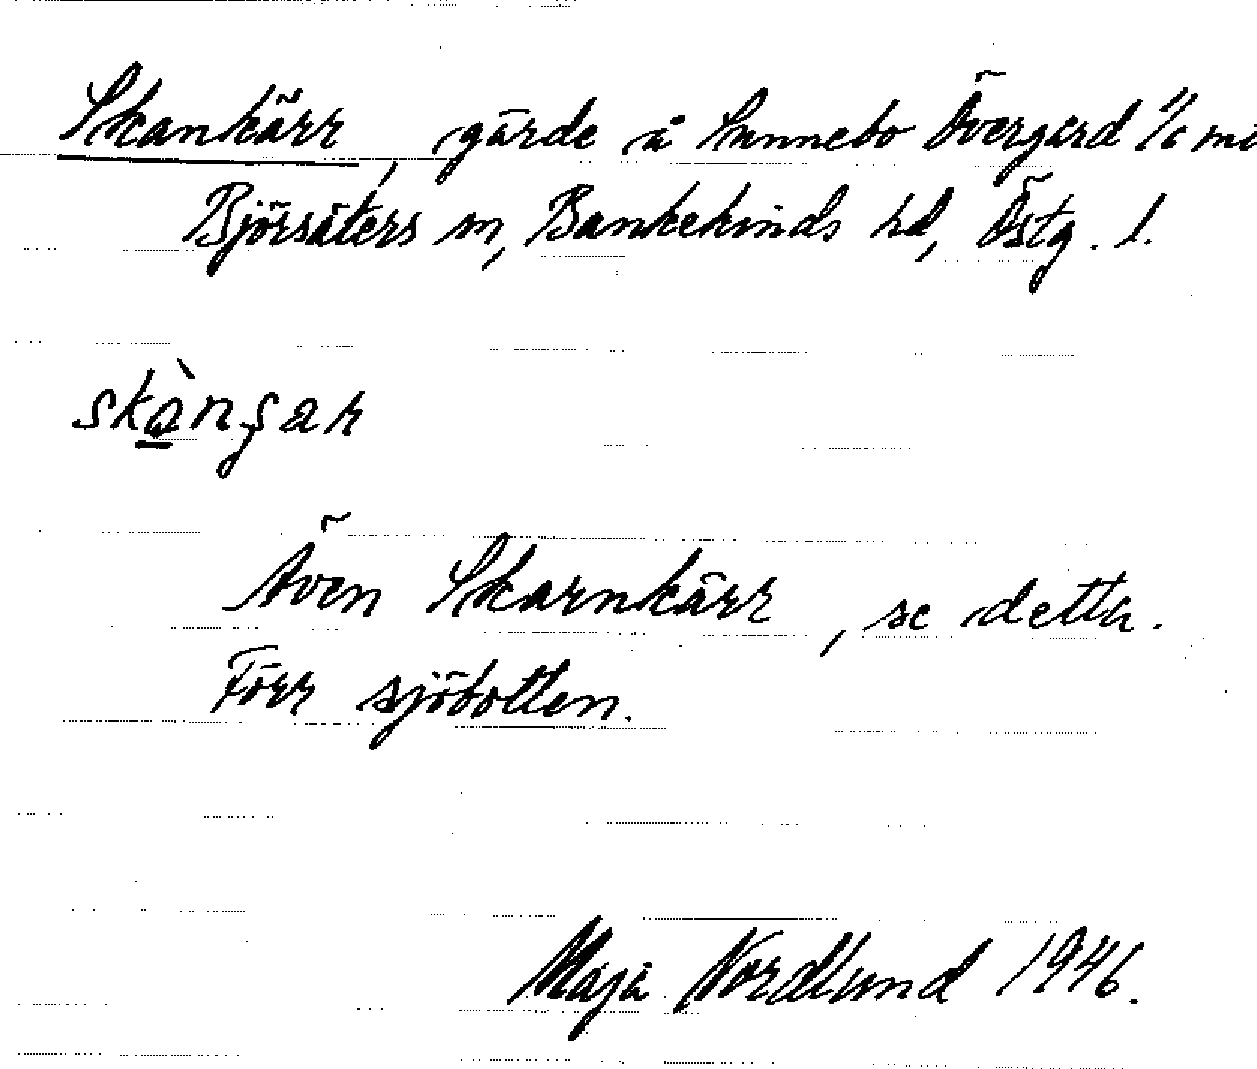 Skankärr, gärde å Sannebo Övergård 1/6 m
Björsäters sn, Bankekinds hd, Östg. l.
skànçar
Även Skarnkärr, se detta.
Förr sjöbotten.
Maja Nordlund 1946.